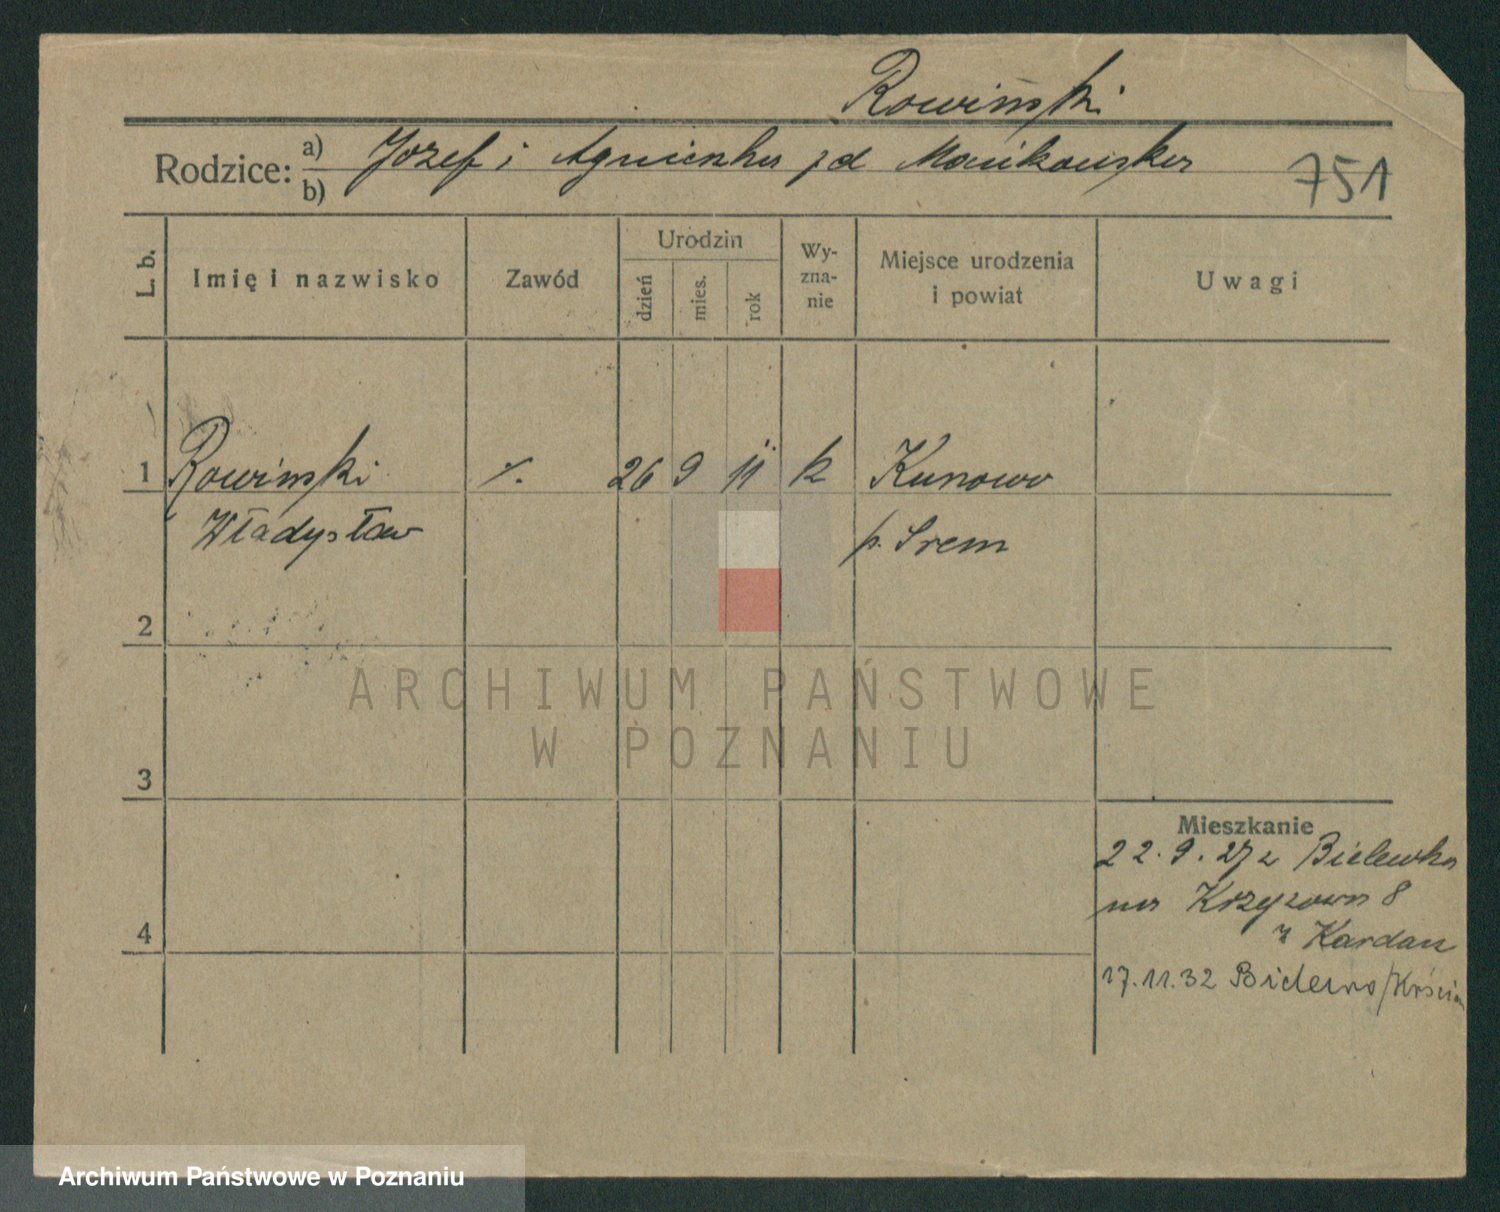 Rowiński
Rodzice: a) Józef i Agnieszka zd Mańkowska
b)
751
L. b.
Imię i nazwisko
Zawód
Urodzin
dzień
mies.
rok
Wy-
zna-
nie
Miejsce urodzenia
i powiat
Uwagi
1 Rowiński ./. 26 9 11 k Kunowo
Władysław p. Śrem
2
3
4
Mieszkanie
22.9.27 z Bielewka
na Krzyżowa 8
z Kardasz
17.11.32 Bielewo/Kościan
ARCHIWUM PAŃSTWOWE
W POZNANIU
Archiwum Państwowe w Poznaniu